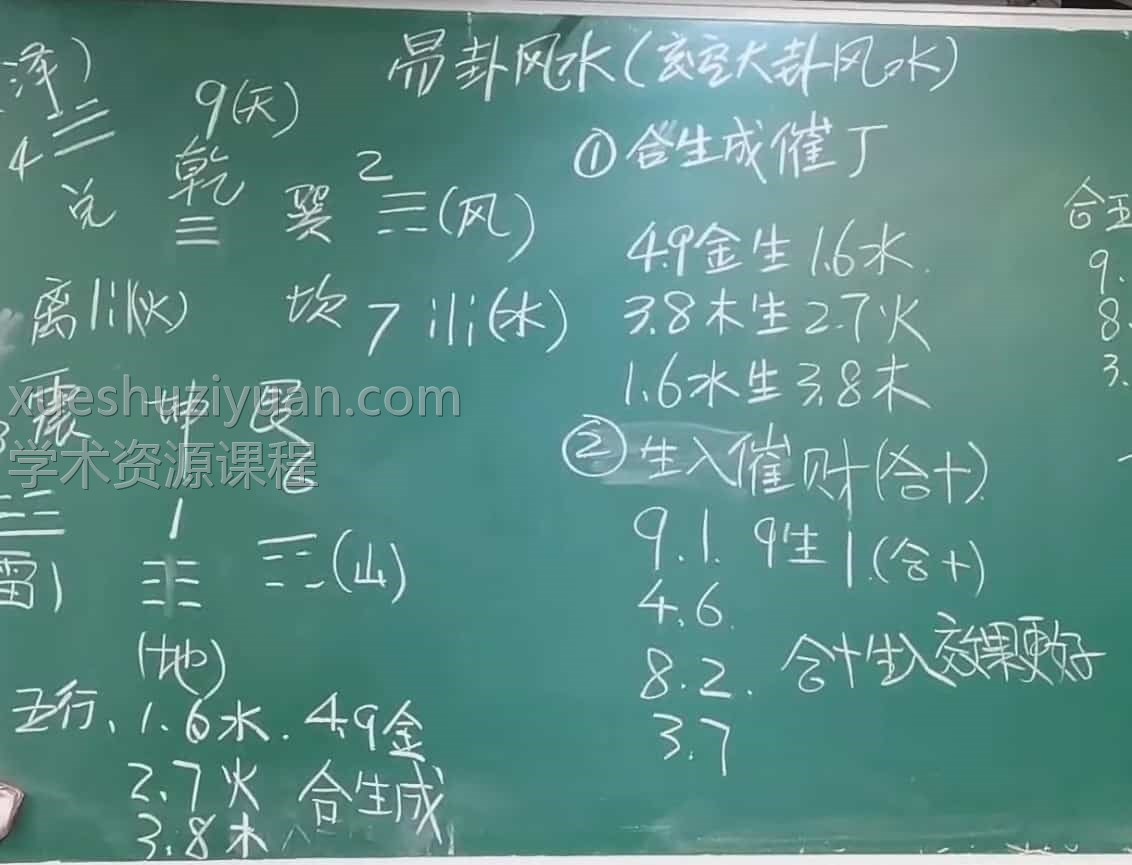 易卦风水(玄空大卦风水)
泽)
4
兑
9(天)
乾
☰
巽 2 ☴(风)
离 1 (火)
坎 7 (水)
3 震 坤 艮
6
1
☷
(山)
雷)
(地)
五行、1.6水.4.9金
2.7火 合生成
3.8木
①合生成催丁
4.9金生1.6水.
3.8木生2.7火
1.6水生3.8木
②生入催财(合十)
9.1. 9生1.(合十)
4.6.
8.2. 合十生入效果更好
3.7
合五
9.
8.
3.
xueshuziyuan.com
学术资源课程